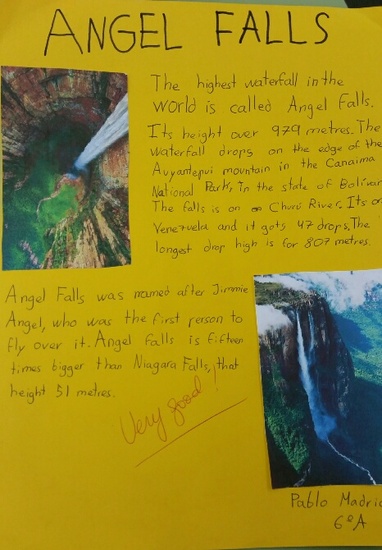 ANGEL FALLS
The highest waterfall in the
world is called Angel Falls.
Its height over 979 metres. The
waterfall drops on the edge of the
Auyantepui mountain in the Canaima
National Park, in the state of Bolívar
The falls is on Churú River. Its on
Venezuela and it gots 47 drops. The
longest drop high is for 807 metres.
Angel Falls was named after Jimmie
Angel, who was the first person to
fly over it. Angel falls is fifteen
times bigger than Niagara Falls, that
height 51 metres.
Very good!
Pablo Madrid
6ºA